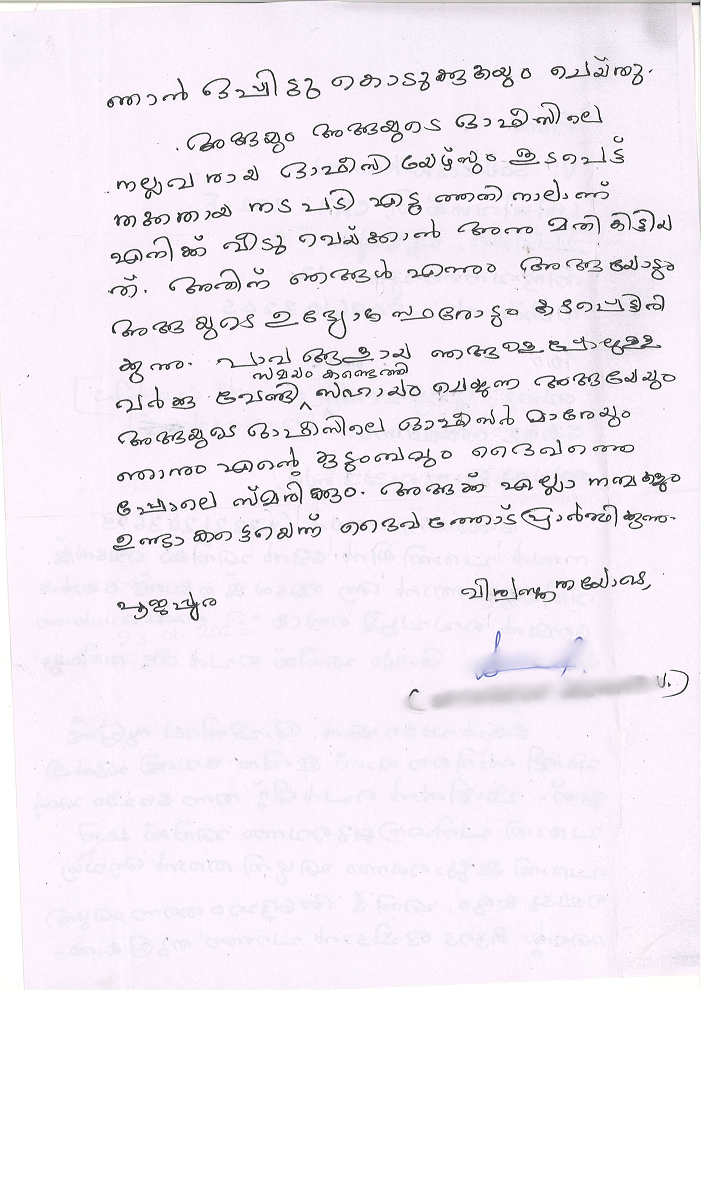 ഞാൻ ഒപ്പിട്ടു കൊടുക്കുകയും ചെയ്തു.
അങ്ങയും അങ്ങയുടെ ഓഫീസിലെ
നല്ലവരായ ഓഫീസിയേഴ്സും ഇടപെട്ട്
തക്കതായ നടപടി എടുത്തതിനാലാണ്
എനിക്ക് വീടു വെയ്ക്കാൻ അനുമതി കിട്ടിയ
ത്. അതിന് ഞങ്ങൾ എന്നും അങ്ങയോടും
അങ്ങയുടെ ഉദ്യോഗസ്ഥരോടും കടപ്പെട്ടിരി
ക്കുന്നു. പാവങ്ങളായ ഞങ്ങളെപ്പോലുള്ള
സമയം കണ്ടെത്തി
വർക്കു വേണ്ടി സഹായം ചെയ്യുന്ന അങ്ങയേയും
അങ്ങയുടെ ഓഫീസിലെ ഓഫീസർമാരേയും
ഞാനും എന്റെ കുടുംബവും ദൈവത്തെ
പോലെ സ്മരിക്കും. അങ്ങക്ക് എല്ലാ നന്മകളും
ഉണ്ടാകട്ടെയെന്ന് ദൈവത്തോട് പ്രാർത്ഥിക്കുന്നു.
വിശ്വസ്തതയോടെ,
പൂജപ്പുര
V.)